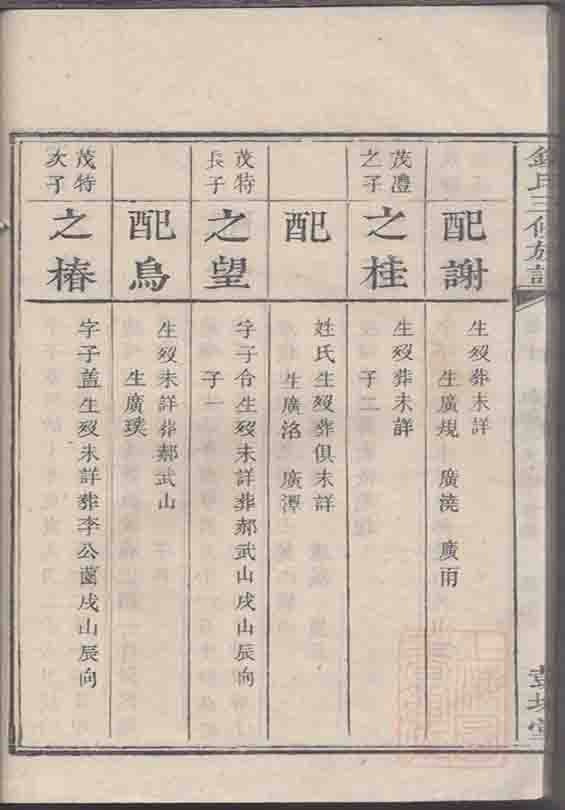 氏三修族譜
配謝
生歿葬未詳
生廣規 廣澆 廣雨
茂澧
之子
之桂
生歿葬未詳
子二
配
姓氏生歿葬俱未詳
生廣洛 廣潭
茂特
長子
之望
字子令生歿未詳葬郝武山戌山辰向
子一
配鳥
生歿未詳葬郝武山
生廣璞
茂特
次子
之椿
字子盖生歿未詳葬李公菌戌山辰向